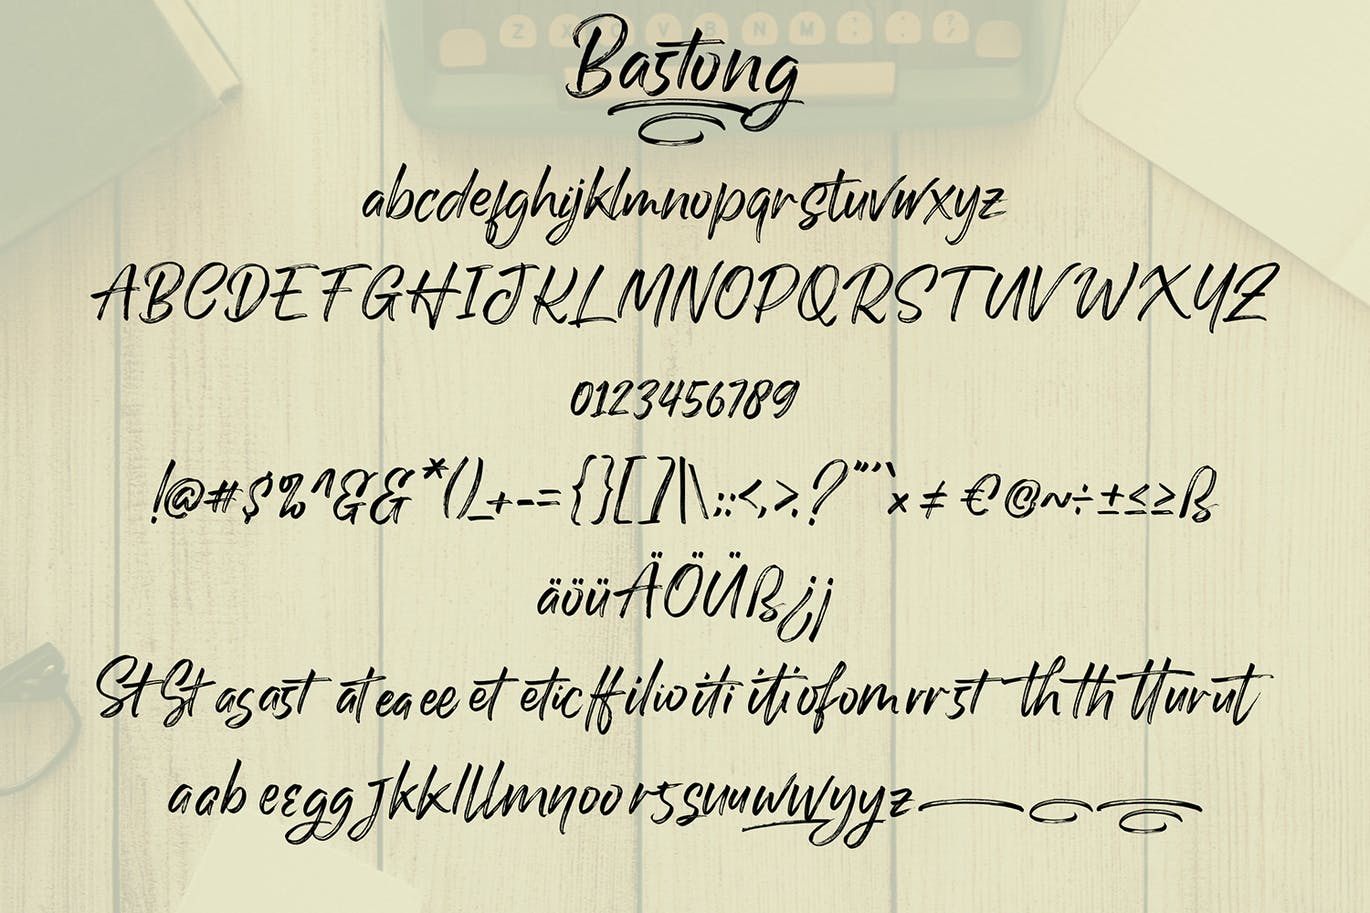 Z X C V B N M
Bastong
abcdefghijklmnopqrstuvwxyz
ABCDEFGHIJKLMNOPQRSTUVWXYZ
0123456789
!@#$%^&&*()_+-={}[]|\;:<,>.?"''`×≠€©~÷±≤≥ß
äöüÄÖÜß¿¡
St St as as st at ea ee et et ic ff il io it i iti of om rr st th th tt ur ut
a a b e e g g J k k l l l m n o o r s s u u w w y y z